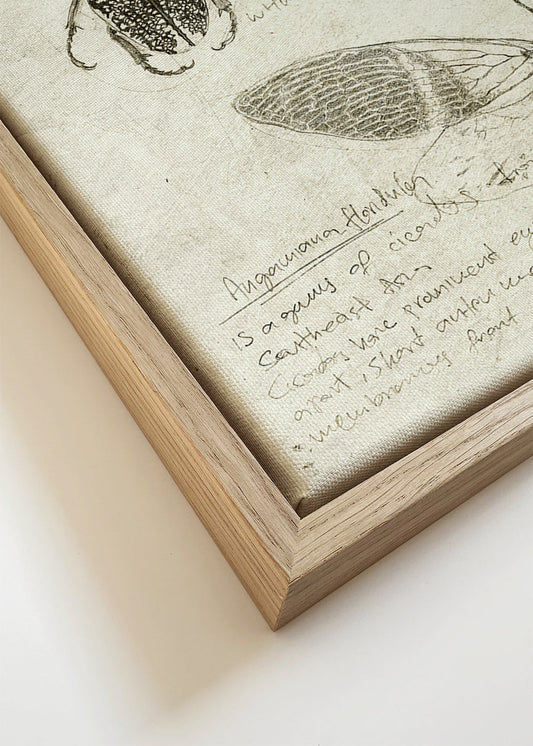 whi
Angamiana floridula
is a genus of cicadas from
Southeast Asia
Cicadas have prominent ey
apart, short antenn
membranous front